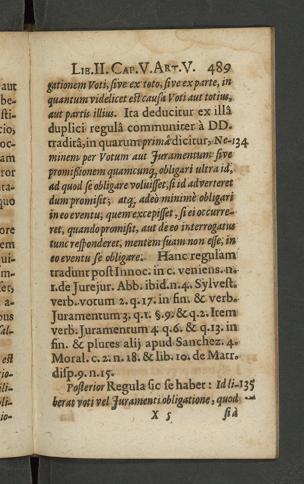 LIB.II. CAP.V. ART.V. 489
gationem Voti, sive ex toto, sive ex parte, in
quantum videlicet est causa Voti aut totius,
aut partis illius. Ita deducitur ex illâ
duplici regulâ communiter à DD.
traditâ, in quarum primâ dicitur, Ne- 134
minem per Votum aut Juramentum sive
promissionem quamcunq, obligari ultra id,
ad quod se obligare voluisset, si id adverteret
dum promisit; atq, adeò minimè obligari
in eo eventu, quem excepisset, si ei occurre-
ret, quando promisit, aut de eo interrogatus
tunc responderet, mentem suam non esse, in
eo eventu se obligare. Hanc regulam
tradunt post Innoc. in c. veniens. n.
1. de Jurejur. Abb. ibid. n. 4. Sylvest.
verb. votum 2. q. 17. in fin. & verb.
Juramentum 3. q. 1. §. 9. & q. 2. Item
verb. Juramentum 4. q. 6. & q. 13. in
fin. & plures alij apud Sanchez. 4.
Moral. c. 2. n. 18. & lib. 10. de Matr.
disp. 9. n. 15.
Posterior Regula sic se habet: Id li- 135
berat voti vel Juramenti obligatione, quod
X 5 si à
aut
be-
sti-
cio,
oc-
am
ror
ita-
quo
ore
em
ui-
m-
et,
a-
bus
est
ili-
pli-
io-